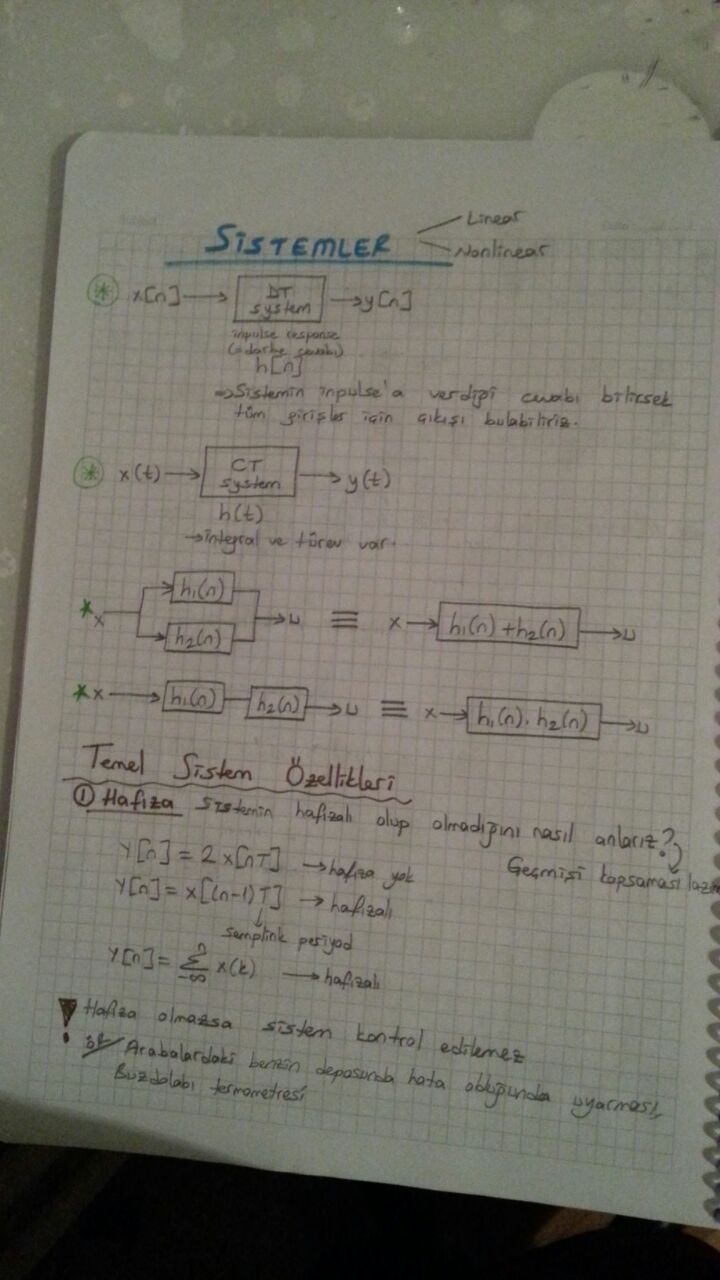 SİSTEMLER
Linear
Nonlinear
x[n] → DT system → y[n]
inpulse response
(=darbe cevabı)
h[n]
⇒ Sistemin inpulse'a verdiği cevabı bilirsek
tüm girişler için çıkışı bulabiliriz.
x(t) → CT system → y(t)
h(t)
→ integral ve türev var.
x h₁(n) h₂(n) → ≡ x → h₁(n)+h₂(n) →
x → h₁(n) h₂(n) → ≡ x → h₁(n).h₂(n) →
Temel Sistem Özellikleri
① Hafıza sistemin hafızalı olup olmadığını nasıl anlarız?
Geçmişi kapsaması lazım
y[n] = 2x[nT] → hafıza yok
y[n] = x[(n-1)T] → hafızalı
samplink periyod
y[n] = n∑-∞ x(k) → hafızalı
! Hafıza olmazsa sistem kontrol edilemez
ör/ Arabalardaki benzin deposunda hata olduğunda uyarması,
Buzdolabı termometresi